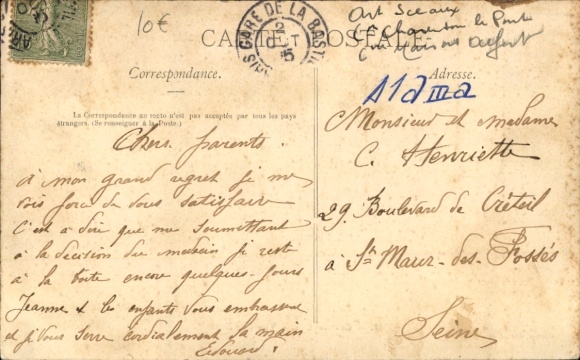 10€
PARIS GARE DE LA BASTILLE
2
15
CARTE POSTALE
Art Sceaux
Con Charenton le Pont
Con Maisons Alfort
Correspondance.
Adresse.
La Correspondance au recto n'est pas acceptée par tous les pays
étrangers. (Se renseigner à la Poste.)
Chers parents.
à mon grand regret je me
vois forcé de vous satisfaire
C'est à dire que me soumettant
à la décision du médecin je reste
à la boîte encore quelques jours
Jeanne & les enfants vous embrassent
et je vous serre cordialement la main
Edouard.
Monsieur et madame
C. Henriette
29. Boulevard de Créteil
à St Maur-des-Fossés
Seine